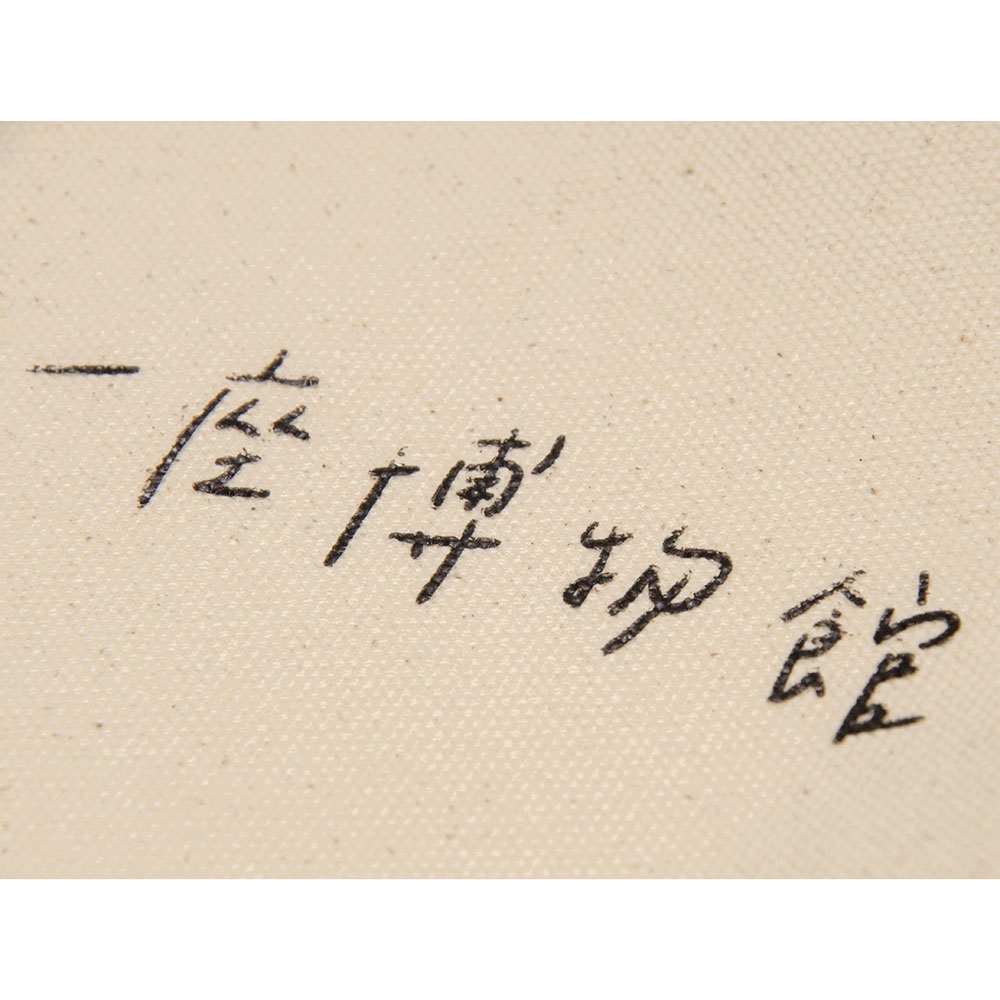 一座博物館